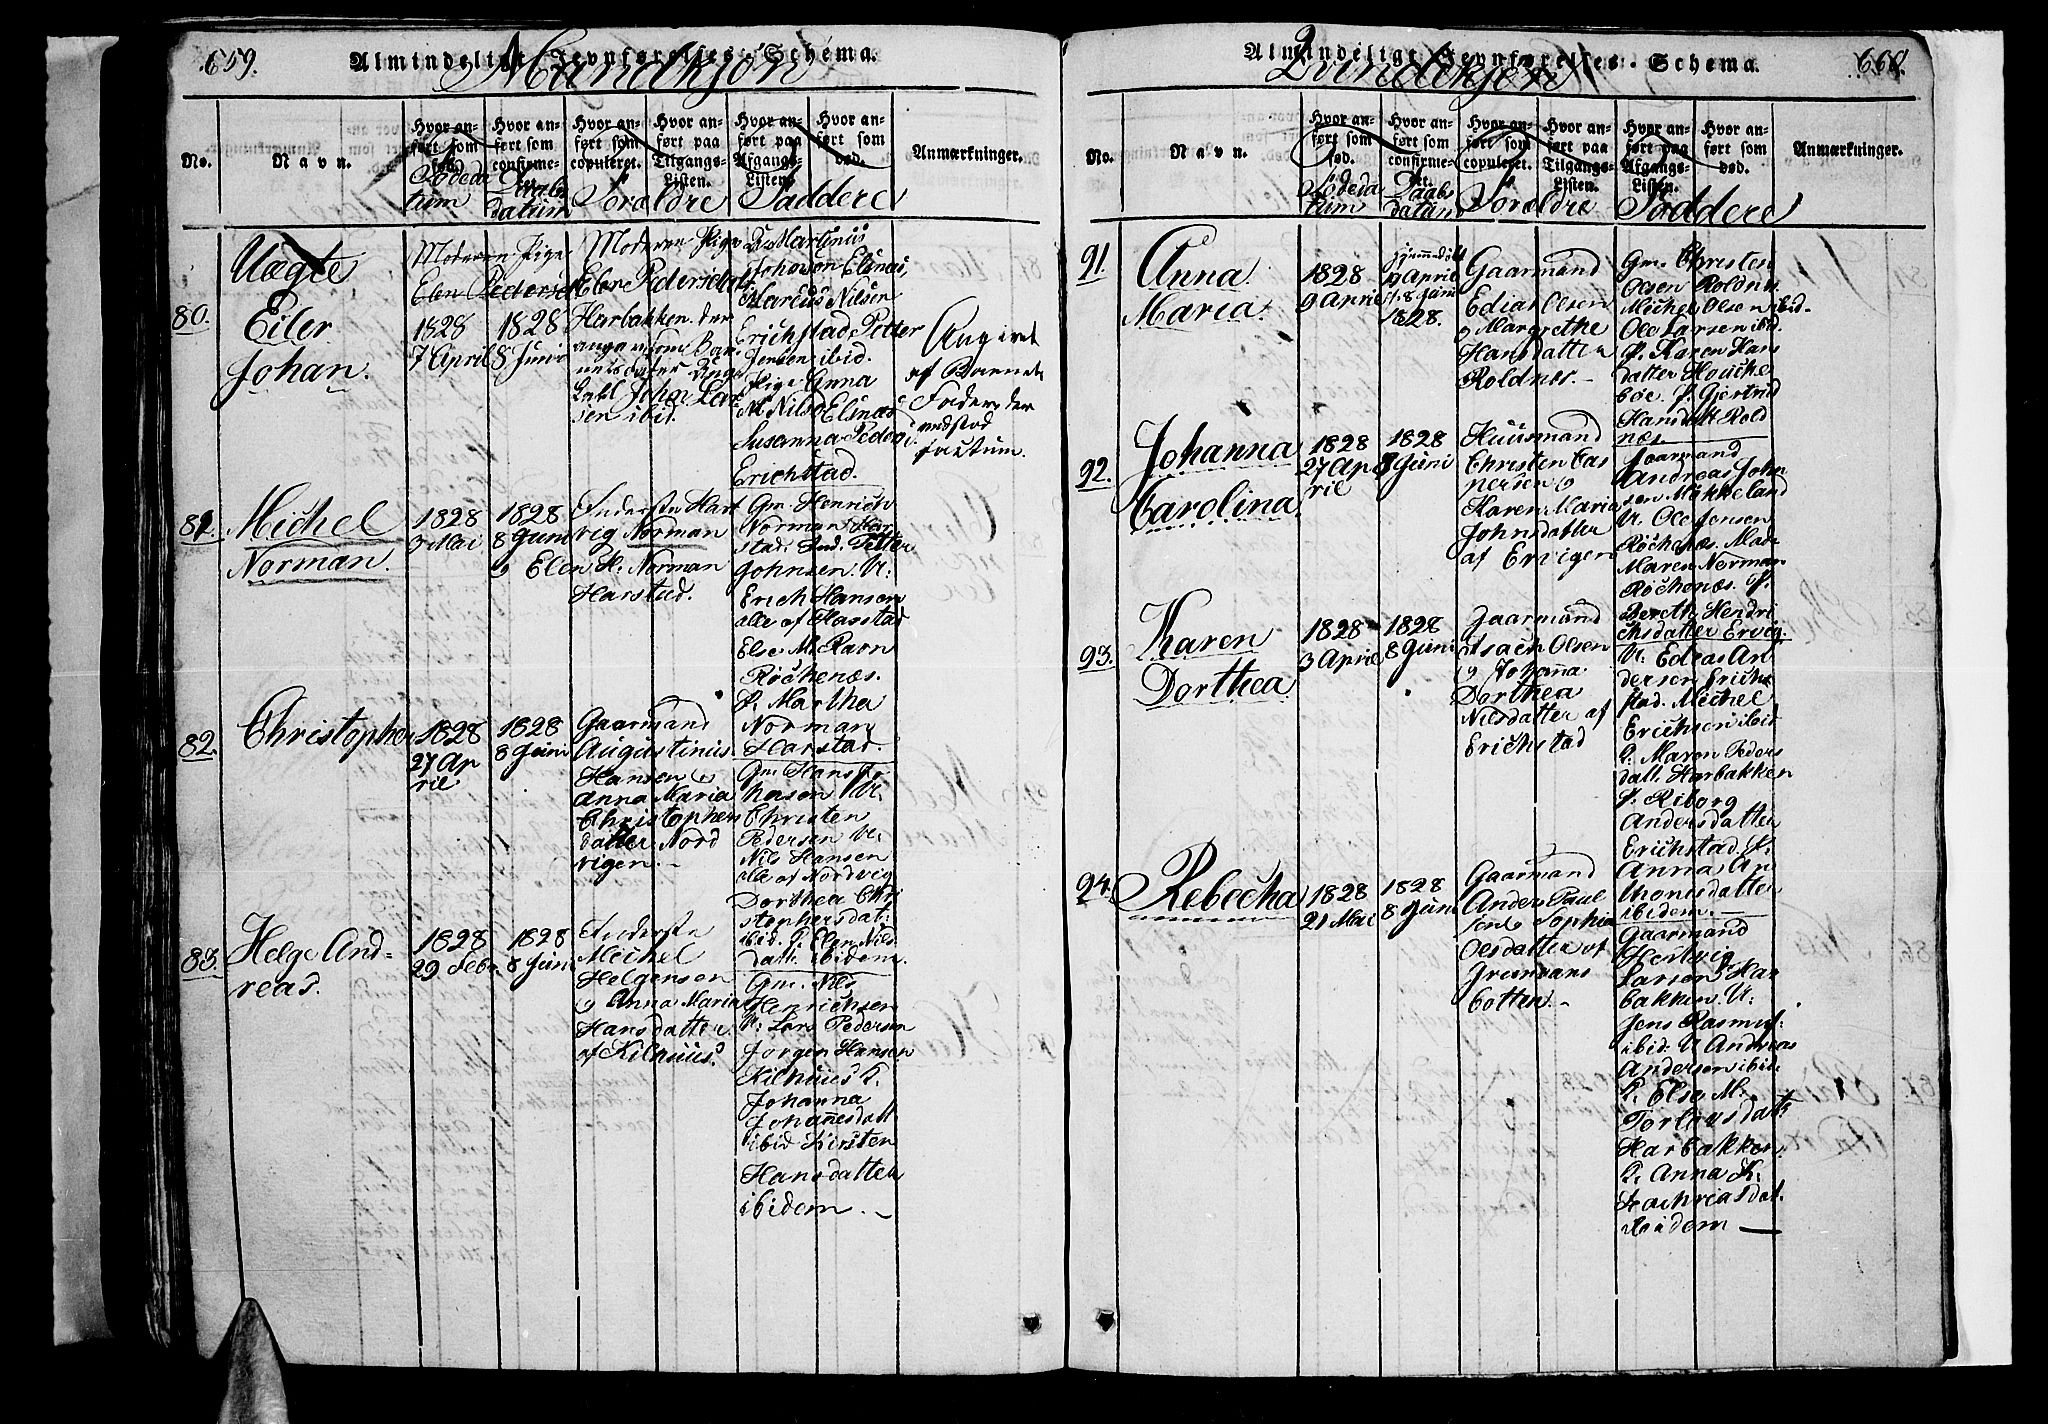 659.
Almindeligt Jevnførelses-Schema.
Mandkjøn
No.
Navn.
Hvor an-
ført som
fød.
Hvor an-
ført som
confirme-
ret.
Hvor an-
ført som
copuleret.
Hvor an-
ført paa
Tilgangs-
Listen.
Hvor an-
ført paa
Afgangs-
Listen.
Hvor an-
ført som
død.
Anmærkninger.
Födeda
tum
Daabs
datum
Forældre
Faddere
80.
Uægte
Eiler
Johan.
Moderen Pige
Elen Peders
1828
7 April
1828
8 Juni
Moderen Pige
Elen Pedersdatt
Harbakken. der
angav som Bar
nets fader Unge
karl Johan Lar
sen ibid.
U. Martinus
Johnson Elsnæs,
Marcus Nilsen
Erichstad, Petter
Jensen ibid.
Pige Anna
M. Nilsd Elsnæs
Susanna Peders
Erichstad.
Angivet
af Barnets
Fader der
nedstod
factum.
81.
Michel
Norman.
1828
3 Mai
1828
8 Juni
Inderste Hart
vig Norman
og Elen H. Norman
Harstad.
Gm. Henrich
Norman Har
stad. Ind. Petter
Johnsen. U:
Erich Hansen
alle af Harstad
Else M. Ravn
Röchenæs.
P. Martha
Norman
Harstad.
82.
Christopher
1828
27 Ap
ril
1828
8 Juni
Gaarmand
Augustinus
Hansen og
Anna Maria
Christophers
datter Nord
vigen.
Gm. Hans Jo
hnsen U:
Christen
Pedersen U:
Nils Hansen
alle af Nordvig
Dorthea Chri
stophersdat:
ibid. P. Elen Nils
datt. ibidem.
83.
Helge And-
reas.
1828
29 Febr.
1828
8 Juni
Inderste
Michel
Helgensen
og Anna Maria
Hansdatter
af Kilhuus.
Gm. Nils
Henrichsen
U: Lars Pedersen
Jörgen Hansen
Kilhuus K.
Johanna
Johannesdatt
ibid Kirsten
Hansdatter
ibidem.
660.
Almindeligt Jevnførelses-Schema.
Qvindekjøn
No.
Navn.
Hvor an-
ført som
fød.
Hvor an-
ført som
confirme-
ret.
Hvor an-
ført som
copuleret.
Hvor an-
ført paa
Tilgangs-
Listen.
Hvor an-
ført paa
Afgangs-
Listen.
Hvor an-
ført som
død.
Anmærkninger.
Födeda
tum
Daabs
datum
Forældre
Faddere
91.
Anna
Maria.
1828
9 April
hjemmedöbt
19 April
8 Juni
1828.
Gaarmand
Edias Olsen
og Margrethe
Hansdatter
Roldnæs.
Gm. Christen
Olsen Roldnæs
Michel Olsen ibid.
Ole Larsen ibid.
P. Karen Hans
datter Houche
böe. P. Gjertrud
Hansdatt Rold
næs
92.
Johanna
Carolina.
1828
27 Ap
ril
1828
8 Juni
Huusmand
Christen Cas
persen og
Karen Maria
Johnsdatter
af Ervigen
Gaarmand
Andreas John
sen Mikkeland
U. Ole Jensen
Röchenæs. Mad.
Maren Norman
Röchenæs. P.
Bereth Hendri
chsdatter Ervig.
93.
Karen
Dorthea.
1828
3 April
1828
8 Juni
Gaarmand
Isach Olsen
og Johanna
Dorthea
Nilsdatter af
Erichstad
U. Edias An
dersen Erich
stad. Michel
Erichsen ibid
P. Maren Peders
datt. Harbakken
P. Riborg
Andersdatter
Erichstad. K.
Anna An
thonisdatter
ibidem.
94.
Rebecha
1828
21 Mai
1828
8 Juni
Gaarmand
Anders Paul
sen og Sophia
Olsdatter af
Grundvans
botten.
Gaarmand
Hertvig
Larsen Har
bakken U:
Jens Rasmus:
ibid. U Andreas
Andersen ibid.
K. Else M.
Torlævsdatt
Harbakken.
K. Anna K.
Zachriasdat.
ibidem